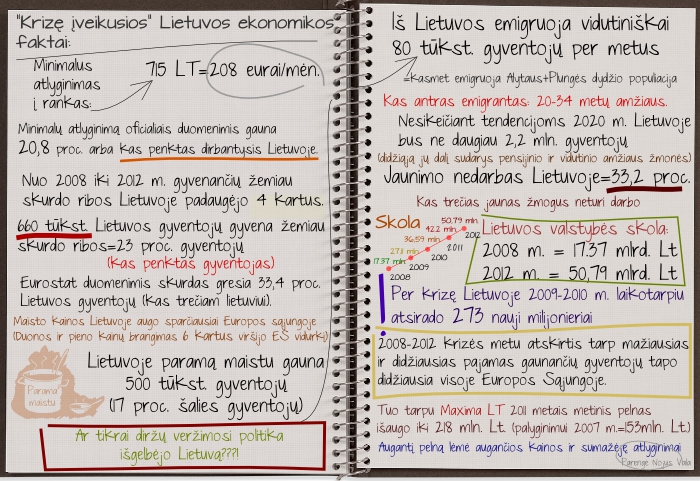 "Krizę įveikusios" Lietuvos ekonomikos
faktai:
Minimalus
atlyginimas
į rankas:
715 LT=208 eurai/mėn.
Minimalų atlyginimą oficialiais duomenimis gauna
20,8 proc. arba kas penktas dirbantysis Lietuvoje.
Nuo 2008 iki 2012 m. gyvenančių žemiau
skurdo ribos Lietuvoje padaugėjo 4 kartus.
660 tūkst. Lietuvos gyventojų gyvena žemiau
skurdo ribos=23 proc. gyventojų
(kas penktas gyventojas)
Eurostat duomenimis skurdas gresia 33,4 proc.
Lietuvos gyventojų (kas trečiam lietuviui).
Maisto kainos Lietuvoje augo sparčiausiai Europos sąjungoje
(Duonos ir pieno kainų brangimas 6 kartus viršijo ES vidurkį)
Parama
maistu
Lietuvoje paramą maistu gauna
500 tūkst. gyventojų
(17 proc. šalies gyventojų)
Ar tikrai diržų veržimosi politika
išgelbėjo Lietuvą???!
Iš Lietuvos emigruoja vidutiniškai
80 tūkst. gyventojų per metus
=kasmet emigruoja Alytaus+Plungės dydžio populiacija
Kas antras emigrantas: 20-34 metų amžiaus.
Nesikeičiant tendencijoms 2020 m. Lietuvoje
bus ne daugiau 2,2 mln. gyventojų
(didžiąją jų dalį sudarys pensijinio ir vidutinio amžiaus žmonės)
Jaunimo nedarbas Lietuvoje=33,2 proc.
Kas trečias jaunas žmogus neturi darbo
Skola
17.37 mln.
27.11 mln.
36,59 mln.
42.2 mln.
50,79 mln.
2008
2009
2010
2011
2012
Lietuvos valstybės skola:
2008 m. = 17.37 mlrd. Lt
2012 m. = 50,79 mlrd. Lt
Per krizę Lietuvoje 2009-2010 m. laikotarpiu
atsirado 273 nauji milijonieriai
2008-2012 Krizės metu atskirtis tarp mažiausias
ir didžiausias pajamas gaunančių gyventojų tapo
didžiausia visoje Europos Sąjungoje.
Tuo tarpu Maxima LT 2011 metais metinis pelnas
išaugo iki 218 mln. Lt (palyginimui 2007 m.=153mln. Lt)
Augantį pelną lėmė augančios kainos ir sumažėję atlyginimai
Parengė Nojus Vala